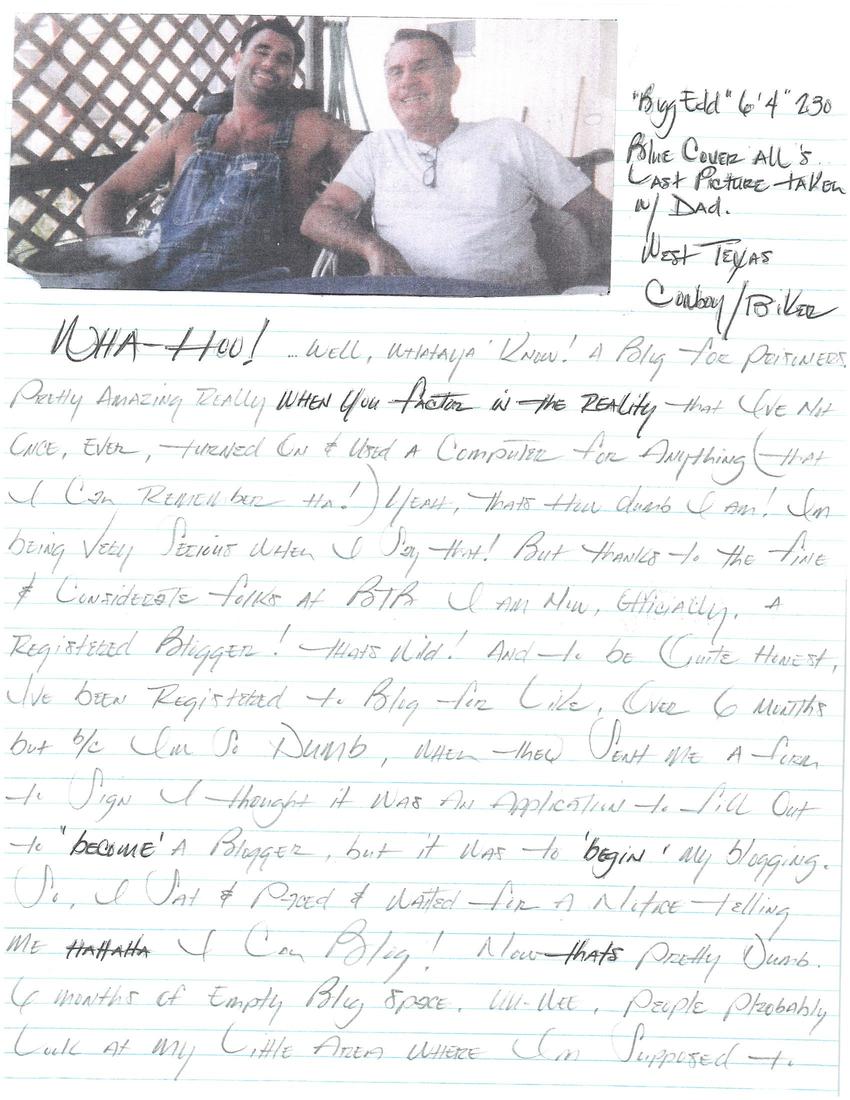 "Bigg Edd" 6'4" 230
Blue Cover All's
Last Picture taken
w/ Dad.
West Texas
Cowboy/Biker
WHA-HOO! ...Well, whataya' Know! A Blog for Prisoners.
Pretty Amazing Really when you factor in the reality that I've Not
Once, Ever, turned On & Used A Computer for Anything (that
I Can Remember ha!) Yeah, thats How dumb I am! Im
being very Serious when I Say that! But thanks to the fine
& Considerate folks at BTB I am Now, Officially, A
Registered Blogger! thats Wild! And to be Quite Honest,
I've been Registered to Blog for Like, Over 6 Months
but b/c Im So Dumb, when they Sent me a form
to Sign I thought it was An Application to fill Out
to 'become' A Blogger, but it was to 'begin' my blogging.
So, I Sat & Paced & waited for A Notice telling
me I Can Blog! Now thats pretty Dumb.
6 months of Empty Blog space. Uu-Wee, people probably
Look at my Little Area where Im Supposed to